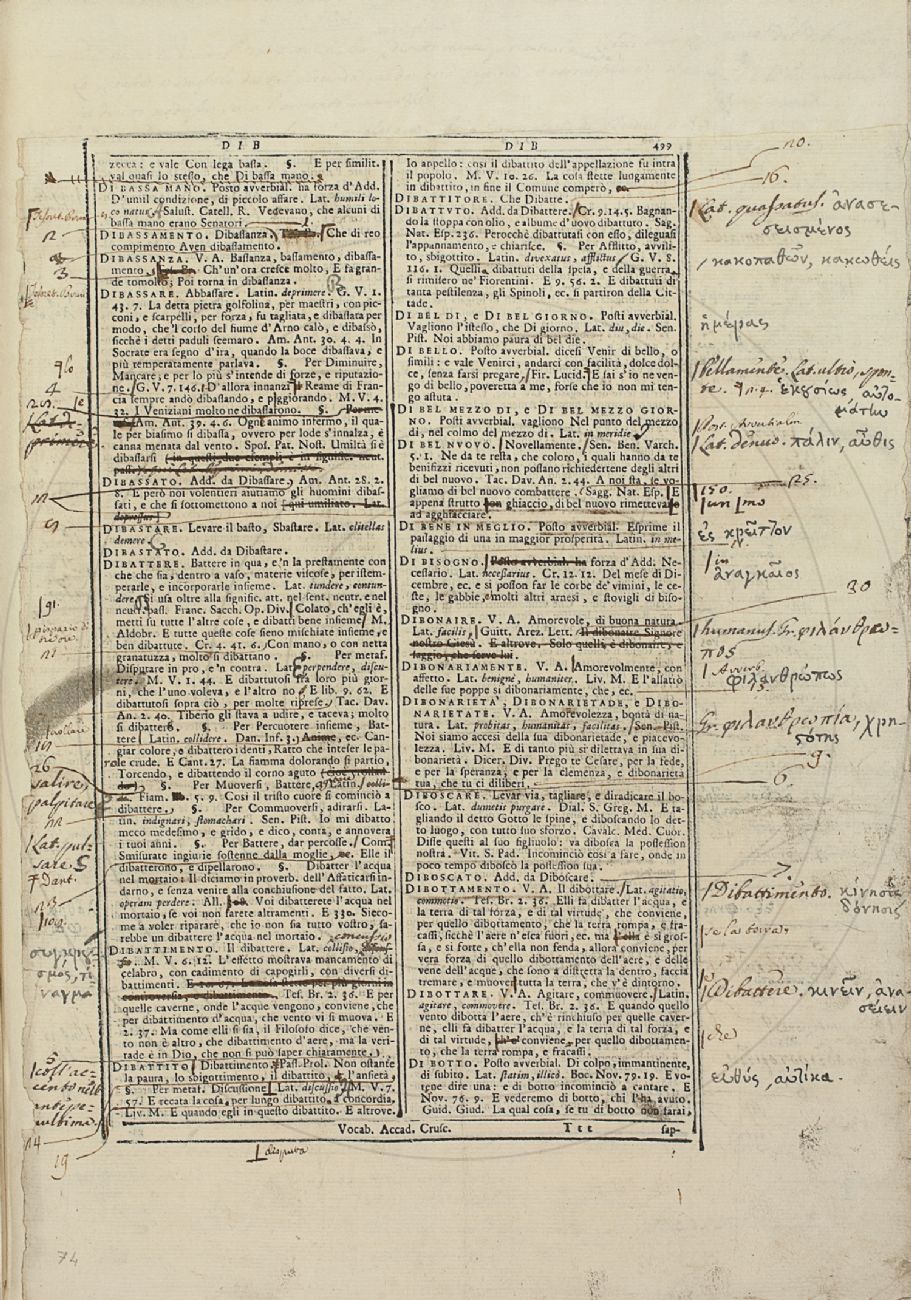 DIB
DIB
499
zecca: e vale Con lega bassa. §. E per similit.
val quasi lo stesso, che Di bassa mano.
DI BASSA MANO. Posto avverbial. ha forza d'Add.
D'umil condizione, di piccolo affare. Lat. humili lo-
co natus. Salust. Catell. R. Vedevano, che alcuni di
bassa mano erano Senatori.
DIBASSAMENTO. Dibassanza. Che di reo
compimento Aven dibassamento.
DIBASSANZA. V. A. Bassanza, bassamento, dibassa-
mento. Ch'un'ora cresce molto, E fa gran-
de tomolto; Poi torna in dibassanza.
DIBASSARE. Abbassare. Latin. deprimere. G. V. 1.
43. 7. La detta pietra golfolina, per maestri, con pic-
coni, e scarpelli, per forza, fu tagliata, e dibassata per
modo, che 'l corso del fiume d'Arno calò, e dibassò,
sicchè i detti paduli scemaro. Am. Ant. 30. 4. 4. In
Socrate era segno d'ira, quando la boce dibassava, e
più temperatamente parlava. §. Per Diminuire,
Mancare; e per lo più s'intende di forze, e riputazio-
ne. G. V. 7. 146. 1. D'allora innanzi il Reame di Fran-
cia sempre andò dibassando, e piggiorando. M. V. 4.
32. I Veniziani molto ne dibassarono. §.
Am. Ant. 39. 4. 6. Ogne animo infermo, il qua-
le per biasimo si dibassa, ovvero per lode s'innalza, è
canna menata dal vento. Spos. Pat. Nost. Umiltà si è
dibassarsi
DIBASSATO. Add. da Dibassare. Am. Ant. 28. 2.
8. E però noi volentieri aiutiamo gli huomini dibas-
sati, e che si sottomettono a noi (qui umiliato. Lat.
depressus)
DIBASTARE. Levare il basto, Sbastare. Lat. clitellas
demere.
DIBASTATO. Add. da Dibastare.
DIBATTERE. Battere in qua, e 'n la prestamente con
che che sia, dentro a vaso, materie viscose, per istem-
perarle, e incorporarle insieme. Lat. tundere, contun-
dere. Si usa oltre alla signific. att. nel sent. neutr. e nel
neutr. pass. Franc. Sacch. Op. Div. Colato, ch'egli è,
metti su tutte l'altre cose, e dibatti bene insieme. M.
Aldobr. E tutte queste cose sieno mischiate insieme, e
ben dibattute. Cr. 4. 41. 6. Con mano, o con netta
granatuzza, molto si dibattano. §. Per metaf.
Disputare in pro, e 'n contra. Lat. perpendere, discu-
tere. M. V. 1. 44. E dibattutosi tra loro più gior-
ni, che l'uno voleva, e l'altro no. E lib. 9. 62. E
dibattutosi sopra ciò, per molte riprese. Tac. Dav.
An. 2. 40. Tiberio gli stava a udire, e taceva; molto
si dibatterè. §. Per Percuotere insieme, Bat-
tere. Latin. collidere. Dan. Inf. 3. Anime, ec. Can-
giar colore, e dibattero i denti, Ratto che inteser le pa-
role crude. E Cant. 27. La fiamma dolorando si partio,
Torcendo, e dibattendo il corno aguto
§. Per Muoversi, Battere. Latin. colli-
di. Fiam. 5. 9. Così il tristo cuore si cominciò a
dibattere. §. Per Commuoversi, adirarsi. La-
tin. indignari, stomachari. Sen. Pist. Io mi dibatto
meco medesimo, e grido, e dico, conta, e annovera
i tuoi anni. §. Per Batter, dar percosse. Com.
Smisurate ingiurie sostenne dalla moglie, ec. Elle il
dibatterono, e dipellarono. §. Dibatter l'acqua
nel mortaio. Il diciamo in proverb. dell'Affaticarsi in-
darno, e senza venire alla conchiusione del fatto. Lat.
operam perdere. All. Voi dibatterete l'acqua nel
mortaio, se voi non farete altramenti. E 330. Sieco-
me a voler riparare, che io non sia tutto vostro, sa-
rebbe un dibattere l'acqua nel mortaio.
DIBATTIMENTO. Il dibattere. Lat. collisio
M. V. 6. 12. L'effetto mostrava mancamento di
celabro, con cadimento di capogirli, con diversi di-
battimenti. E 10. 67. La cosa stette per più giorni in
controversia, e dibattimento. Tes. Br. 2. 36. E per
quelle caverne, onde l'acque vengono, conviene, che
per dibattimento d'acqua, che vento vi si muova. E
2. 37. Ma come elli si sia, il Filosofo dice, che ven-
to non è altro, che dibattimento d'aere, ma la veri-
tade è in Dio, che non si può saper chiaramente.
DIBATTITO. Dibattimento. Pass. Prol. Non ostante
la paura, lo sbigottimento, il dibattito, e l'ansietà.
§. Per metaf. Discussione. Lat. discussio. M. V. 7.
57. E recata la cosa, per lungo dibattito, a concordia.
Liv. M. E quando egli in questo dibattito. E altrove.
Io appello: così il dibattito dell'appellazione fu intra
il popolo. M. V. 10. 26. La cosa stette lungamente
in dibattito, in fine il Comune comperò, ec.
DIBATTITORE. Che Dibatte.
DIBATTUTO. Add. da Dibattere. Cr. 9. 14. 5. Bagnan-
do la stoppa con olio, e albume d'uovo dibattuto. Sag.
Nat. Esp. 236. Perocchè dibattutasi con esso, dileguasi
l'appannamento, e chiarisce. §. Per Afflitto, avvili-
to, sbigottito. Latin. divexatus, afflictus. G. V. 8.
116. 1. Quelli dibattuti della spesa, e della guerra,
si rimisero ne' Fiorentini. E 9. 56. 2. E dibattuti di
tanta pestilenza, gli Spinoli, ec. si partiron della Cit-
tade.
DI BEL DI, e DI BEL GIORNO. Posti avverbial.
Vagliono l'istesso, che Di giorno. Lat. diu, die. Sen.
Pist. Noi abbiamo paura di bel die.
DI BELLO. Posto avverbial. dicesi Venir di bello, o
simili: e vale Venirci, andarci con facilità, dolce dol-
ce, senza farsi pregare. Fir. Lucid. E sai s'io ne ven-
go di bello, poveretta a me, forse che io non mi ten-
go astuta.
DI BEL MEZZO DI, e DI BEL MEZZO GIOR-
NO. Posti avverbial. vagliono Nel punto del mezzo
di, nel colmo del mezzo di. Lat. in meridie.
DI BEL NUOVO. Novellamente. Sen. Ben. Varch.
5. 1. Ne da te resta, che coloro, i quali hanno da te
benifizzi ricevuti, non possano richiedertene degli altri
di bel nuovo. Tac. Dav. An. 2. 44. A noi sta, se vo-
gliamo di bel nuovo combattere. Sagg. Nat. Esp. E
appena strutto ghiaccio, di bel nuovo rimettevasi
ad agghiacciare.
DI BENE IN MEGLIO. Posto avverbial. Esprime il
passaggio di una in maggior prosperità. Latin. in me-
lius.
DI BISOGNO. Posto avverbial. ha forza d'Add. Ne-
cessario. Lat. necessarius. Cr. 12. 12. Del mese di Di-
cembre, ec. e si posson far le corbe de' vimini, le ce-
ste, le gabbie, e molti altri arnesi, e stovigli di biso-
gno.
DIBONAIRE. V. A. Amorevole, di buona natura.
Lat. facilis. Guitt. Arez. Lett. Il dibonaire Signore
nostro Giesù. E altrove. Solo quelli è dibonaire, e
saggio, che serve lui.
DIBONARIAMENTE. V. A. Amorevolmente, con
affetto. Lat. benigné, humaniter. Liv. M. E l'assatiò
delle sue poppe sì dibonariamente, che, ec.
DIBONARIETA', DIBONARIETADE, e DIBO-
NARIETATE. V. A. Amorevolezza, bontà di na-
tura. Lat. probitas, humanitas, facilitas. Sen. Pist.
Noi siamo accesi della sua dibonarietade, e piacevo-
lezza. Liv. M. E di tanto più si dilettava in sua di-
bonarietà. Dicer. Div. Prego te Cesare, per la fede,
e per la speranza, e per la clemenza, e dibonarietà
tua, che tu ci diliberi.
DIBOSCARE. Levar via, tagliare, e diradicare il bo-
sco. Lat. dumetis purgare. Dial. S. Greg. M. E ta-
gliando il detto Gotto le spine, e diboscando lo det-
to luogo, con tutto suo sforzo. Cavalc. Med. Cuor.
Disse questi al suo figliuolo: va dibosca la possession
nostra. Vit. S. Pad. Incominciò così a fare, onde in
poco tempo diboscò la possession sua.
DIBOSCATO. Add. da Diboscare.
DIBOTTAMENTO. V. A. Il dibottare. Lat. agitatio,
commotio. Tes. Br. 2. 36. Elli fa dibatter l'acqua, e
la terra di tal forza, e di tal virtude, che conviene,
per quello dibottamento, che la terra rompa, e fra-
cassi, sicchè l'aere n'esca fuori, ec. ma s'ella è sì gros-
sa, e sì forte, ch'ella non fenda, allora conviene, per
vera forza di quello dibottamento dell'aere, e delle
vene dell'acque, che sono a distretta la dentro, faccia
tremare, e muover tutta la terra, che v'è dintorno.
DIBOTTARE. V. A. Agitare, commuovere. Latin.
agitare, commovere. Tes. Br. 2. 36. E quando quello
vento dibotta l'aere, ch'è rinchiuso per quelle caver-
ne, elli fa dibatter l'acqua, e la terra di tal forza, e
di tal virtude, conviene, per quello dibottamen-
to, che la terra rompa, e fracassi.
DI BOTTO. Posto avverbial. Di colpo, immantinente,
di subito. Lat. statim, illicò. Boc. Nov. 79. 19. E vo-
tene dire una: e di botto incominciò a cantare. E
Nov. 76. 9. E vederemo di botto, chi l'ha avuto.
Guid. Giud. La qual cosa, se tu di botto non farai,
Vocab. Accad. Crusc.
Ttt
sap-
disputa
12
3
4
12
9
91
26
salire,
palpitare
Lat. pul-
sare.
Dant.
5
coll'ac-
cento nell'
antipe-
nultima.
14
19
74
20.
16.
Lat. quassatus. ἀνασε-
σεισμένος
κακοπαθῶν, κακωθείς
ἡμέρας
Bellamente. Lat. ultro, spon-
te. ἑκουσίως, αὐτο-
μάτως
Lat. denuo. πάλιν, αὖθις
25.
150.
ἐς κρεῖττον
in
ἀναγκαῖος
30
humanus. Gr. φιλάνθρω-
πος
Avverb.
φιλανθρώπως
15.
Gr. φιλανθρωπία, χρη-
στότης
9.
6.
7.
Dibattimento. κίνησις
δόνησις
Dibattere. κινεῖν, ἀνα-
σείειν
che
εὐθύς, αὐτίκα.